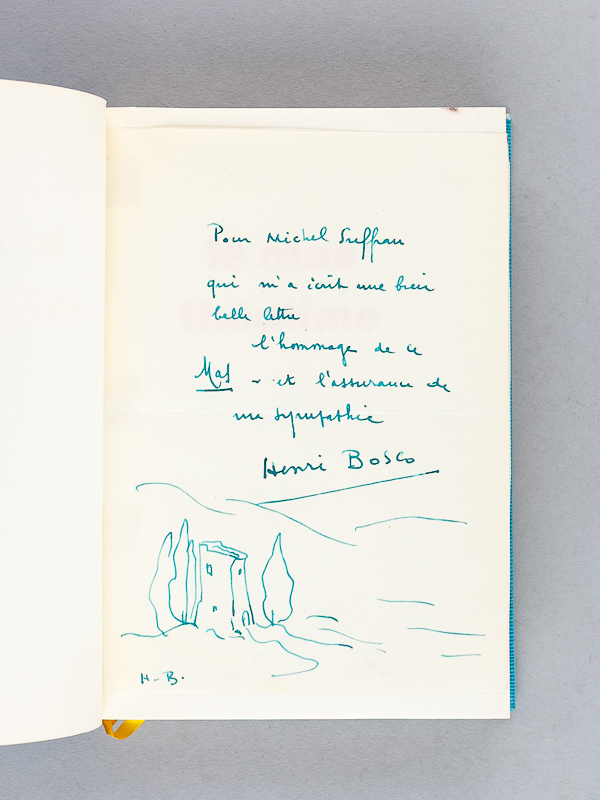 Pour Michel Suffran
qui m'a écrit une bien
belle lettre
l'hommage de ce
Mas - et l'assurance de
ma sympathie
Henri Bosco
H-B.